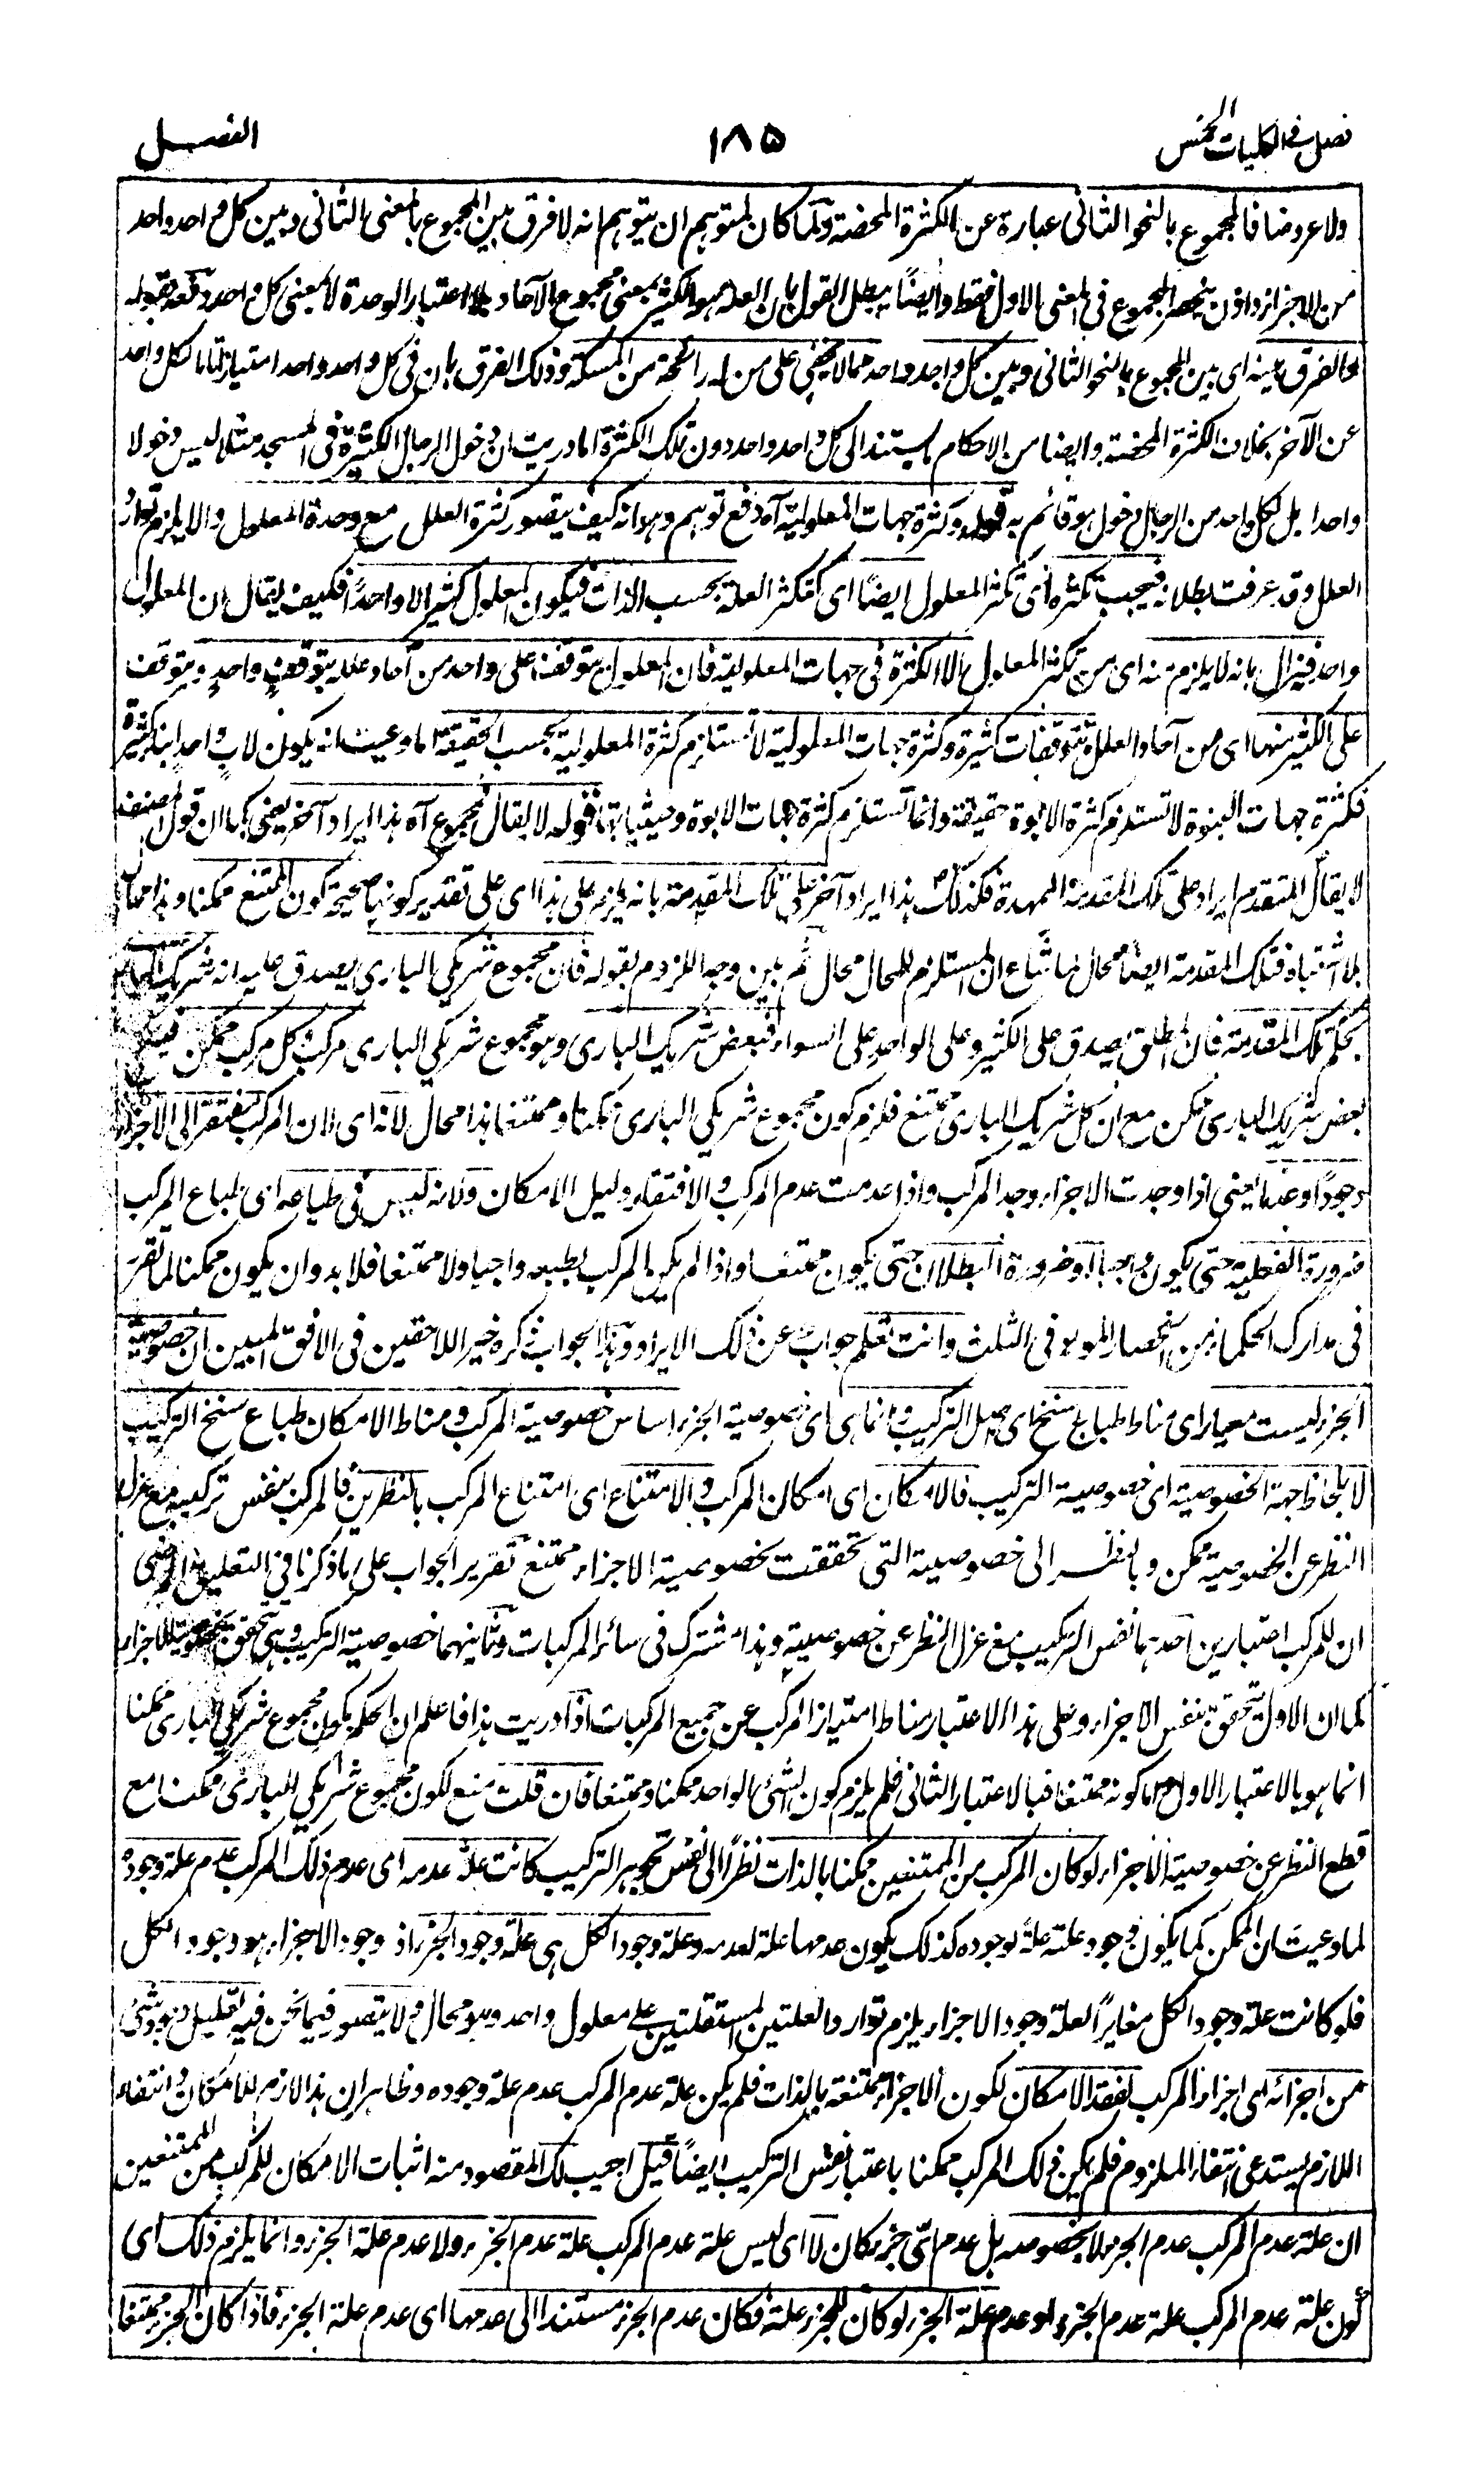 فصل فى الكليات الخمس ١٨٥ الفصل
ولا عروضا فالمجموع بالنحو الثانى عبارة عن الكثرة المحضة ولما كان لمتوهم ان يتوهم انه لا فرق بين المجموع بالمعنى الثانى وبين كل واحد واحد
من الاجزاء واذن ينحصر المجموع فى المعنى الاول فقط وايضا يبطل القول بان العلة هو الكثير بمعنى مجموع الآحاد بلا اعتبار الوحدة لا بمعنى كل واحد دفعه بقوله
والفرق بينه اى بين المجموع بالنحو الثانى وبين كل واحد واحد مما لا يخفى على من له رائحة من المسكة وذلك الفرق بان فى كل واحد واحد امتيازا لكل واحد
عن الآخر بخلاف الكثرة المحضة وايضا من الاحكام ما يستند الى كل واحد واحد دون تلك الكثرة اما دريت ان دخول الرجال الكثيرة فى المسجد مثلا ليس دخولا
واحدا بل لكل واحد من الرجال دخول هو قائم به قوله وكثرة جهات المعلولية آه دفع توهم وهو انه كيف يتصور كثرة العلل مع وحدة المعلول والا يلزم توارد
العلل وقد عرفت بطلانه فيجب تكثره اى تكثر المعلول ايضا اى كتكثر العلة بحسب الذات فيكون المعلول كثيرا لا واحدا فكيف يقال ان المعلول
واحد فيزال بانه لا يلزم منه اى من تكثر المعلول الا الكثرة فى جهات المعلولية فان المعلول يتوقف على واحد من آحاد علله بتوقف واحد ويتوقف
على الكثير منها اى من آحاد العلل بتوقفات كثيرة وكثرة جهات المعلولية لا تستلزم كثرة المعلولية بحسب الحقيقة اما وعيت انه يكون لاب واحد ابناء كثيرة
فكثرة جهات البنوة لا تستلزم كثرة الابوة حقيقة وانما تستلزم كثرة جهات الابوة وحيثياتها قوله لا يقال مجموع آه هذا ايراد آخر يعنى كما ان قول المصنف
لا يقال المتقدم ايراد على تلك المقدمة الممهدة فكذلك هذا ايراد آخر على تلك المقدمة بانه يلزم على هذا اى على تقدير كونها صحيحة كون الممتنع ممكنا وهذا محال
بلا اشتباه فتلك المقدمة ايضا محال لما شاع ان المستلزم للمحال محال ثم بين وجه اللزوم بقوله فان مجموع شريكى البارى يصدق عليه انه شريك البارى
بحكم تلك المقدمة فان المطلق يصدق على الكثير وعلى الواحد على السواء فبعض شريك البارى وهو مجموع شريكى البارى مركب وكل مركب ممكن
بعض شريك البارى ممكن مع ان كل شريك البارى ممتنع فلزم كون مجموع شريكى البارى ممكنا وممتنعا هذا محال لانه اى لان المركب مفتقر الى الاجزاء
وجودا وعدما يعنى اذا وجدت الاجزاء وجد المركب واذا عدمت عدم المركب والافتقار دليل الامكان ولانه ليس فى طباعه اى طباع المركب
ضرورة الفعلية حتى يكون واجبا او ضرورة البطلان حتى يكون ممتنعا واذا لم يكن المركب بطبعه واجبا ولا ممتنعا فلا بد وان يكون ممكنا لما تقرر
فى مدارك الحكماء من انحصار المواد فى الثلث وانت تعلم جواب عن ذلك الايراد وهذا الجواب ذكره خير اللاحقين فى الافق المبين ان خصوصية
الجزء ليست معيارا اى مناط طباع سنخ اى اصل التركيب وانما هى اى خصوصية الجزء اساس خصوصية المركب ومناط الامكان طباع سنخ التركيب
لا بلحاظ جهة الخصوصية اى خصوصية التركيب فالامكان اى امكان المركب والامتناع اى امتناع المركب بالنظرين فالمركب بنفس تركيبه مع عزل
النظر عن الخصوصية ممكن وبالنظر الى خصوصية التى تحققت بخصوصية الاجزاء ممتنع تقرير الجواب على ما ذكرنا فى التعليق المرضى
ان للمركب اعتبارين احدهما نفس التركيب مع عزل النظر عن خصوصية وهذا مشترك فى سائر المركبات وثانيهما خصوصية التركيب وهى تحقق بخصوصية الاجزاء
كما ان الاول تحقق بنفس الاجزاء وعلى هذا الاعتبار مناط امتياز المركب عن جميع المركبات اذا دريت هذا فاعلم ان الحكم بكون مجموع شريكى البارى ممكنا
انما هو بالاعتبار الاول واما كونه ممتنعا فبالاعتبار الثانى فلم يلزم كون الشئ الواحد ممكنا وممتنعا فان قلت منع لكون مجموع شريكى البارى ممكنا مع
قطع النظر عن خصوصية الاجزاء لو كان المركب من الممتنعين ممكنا بالذات نظرا الى نفس تجوهر التركيب كانت علة عدمه اى عدم ذلك المركب عدم علة وجوده
لما وعيت ان الممكن كما يكون وجود علته علة لوجوده كذلك يكون عدمها علة لعدمه وعلة وجود الكل هى علة وجود الجزء اذ وجود الاجزاء هو وجود الكل
فلو كانت علة وجود الكل مغايرا لعلة وجود الاجزاء يلزم توارد العلتين المستقلتين على معلول واحد وهو محال ولا يتصور فيما نحن فيه تعليل وجود شئ
من اجزائه اى اجزاء المركب لفقد الامكان لكون الاجزاء ممتنعة بالذات فلم يكن علة عدم المركب عدم علة وجوده وظاهر ان هذا لازم للامكان وانتفاء
اللازم يستدعى انتفاء الملزوم فلم يكن ذلك المركب ممكنا باعتبار نفس التركيب ايضا قيل اجيب لك المقصود منه اثبات الامكان للمركب من الممتنعين
ان علة عدم المركب عدم الجزء لا بخصوصه بل عدم اى جزء كان لا اى ليس علة عدم المركب علة عدم الجزء ولا عدم علة الجزء وانما يلزم ذلك اى
كون علة عدم المركب علة عدم الجزء او عدم علة الجزء لو كان للجزء علة فكان عدم الجزء مستندا الى عدمها اى عدم علة الجزء فاذا كان الجزء ممتنعا